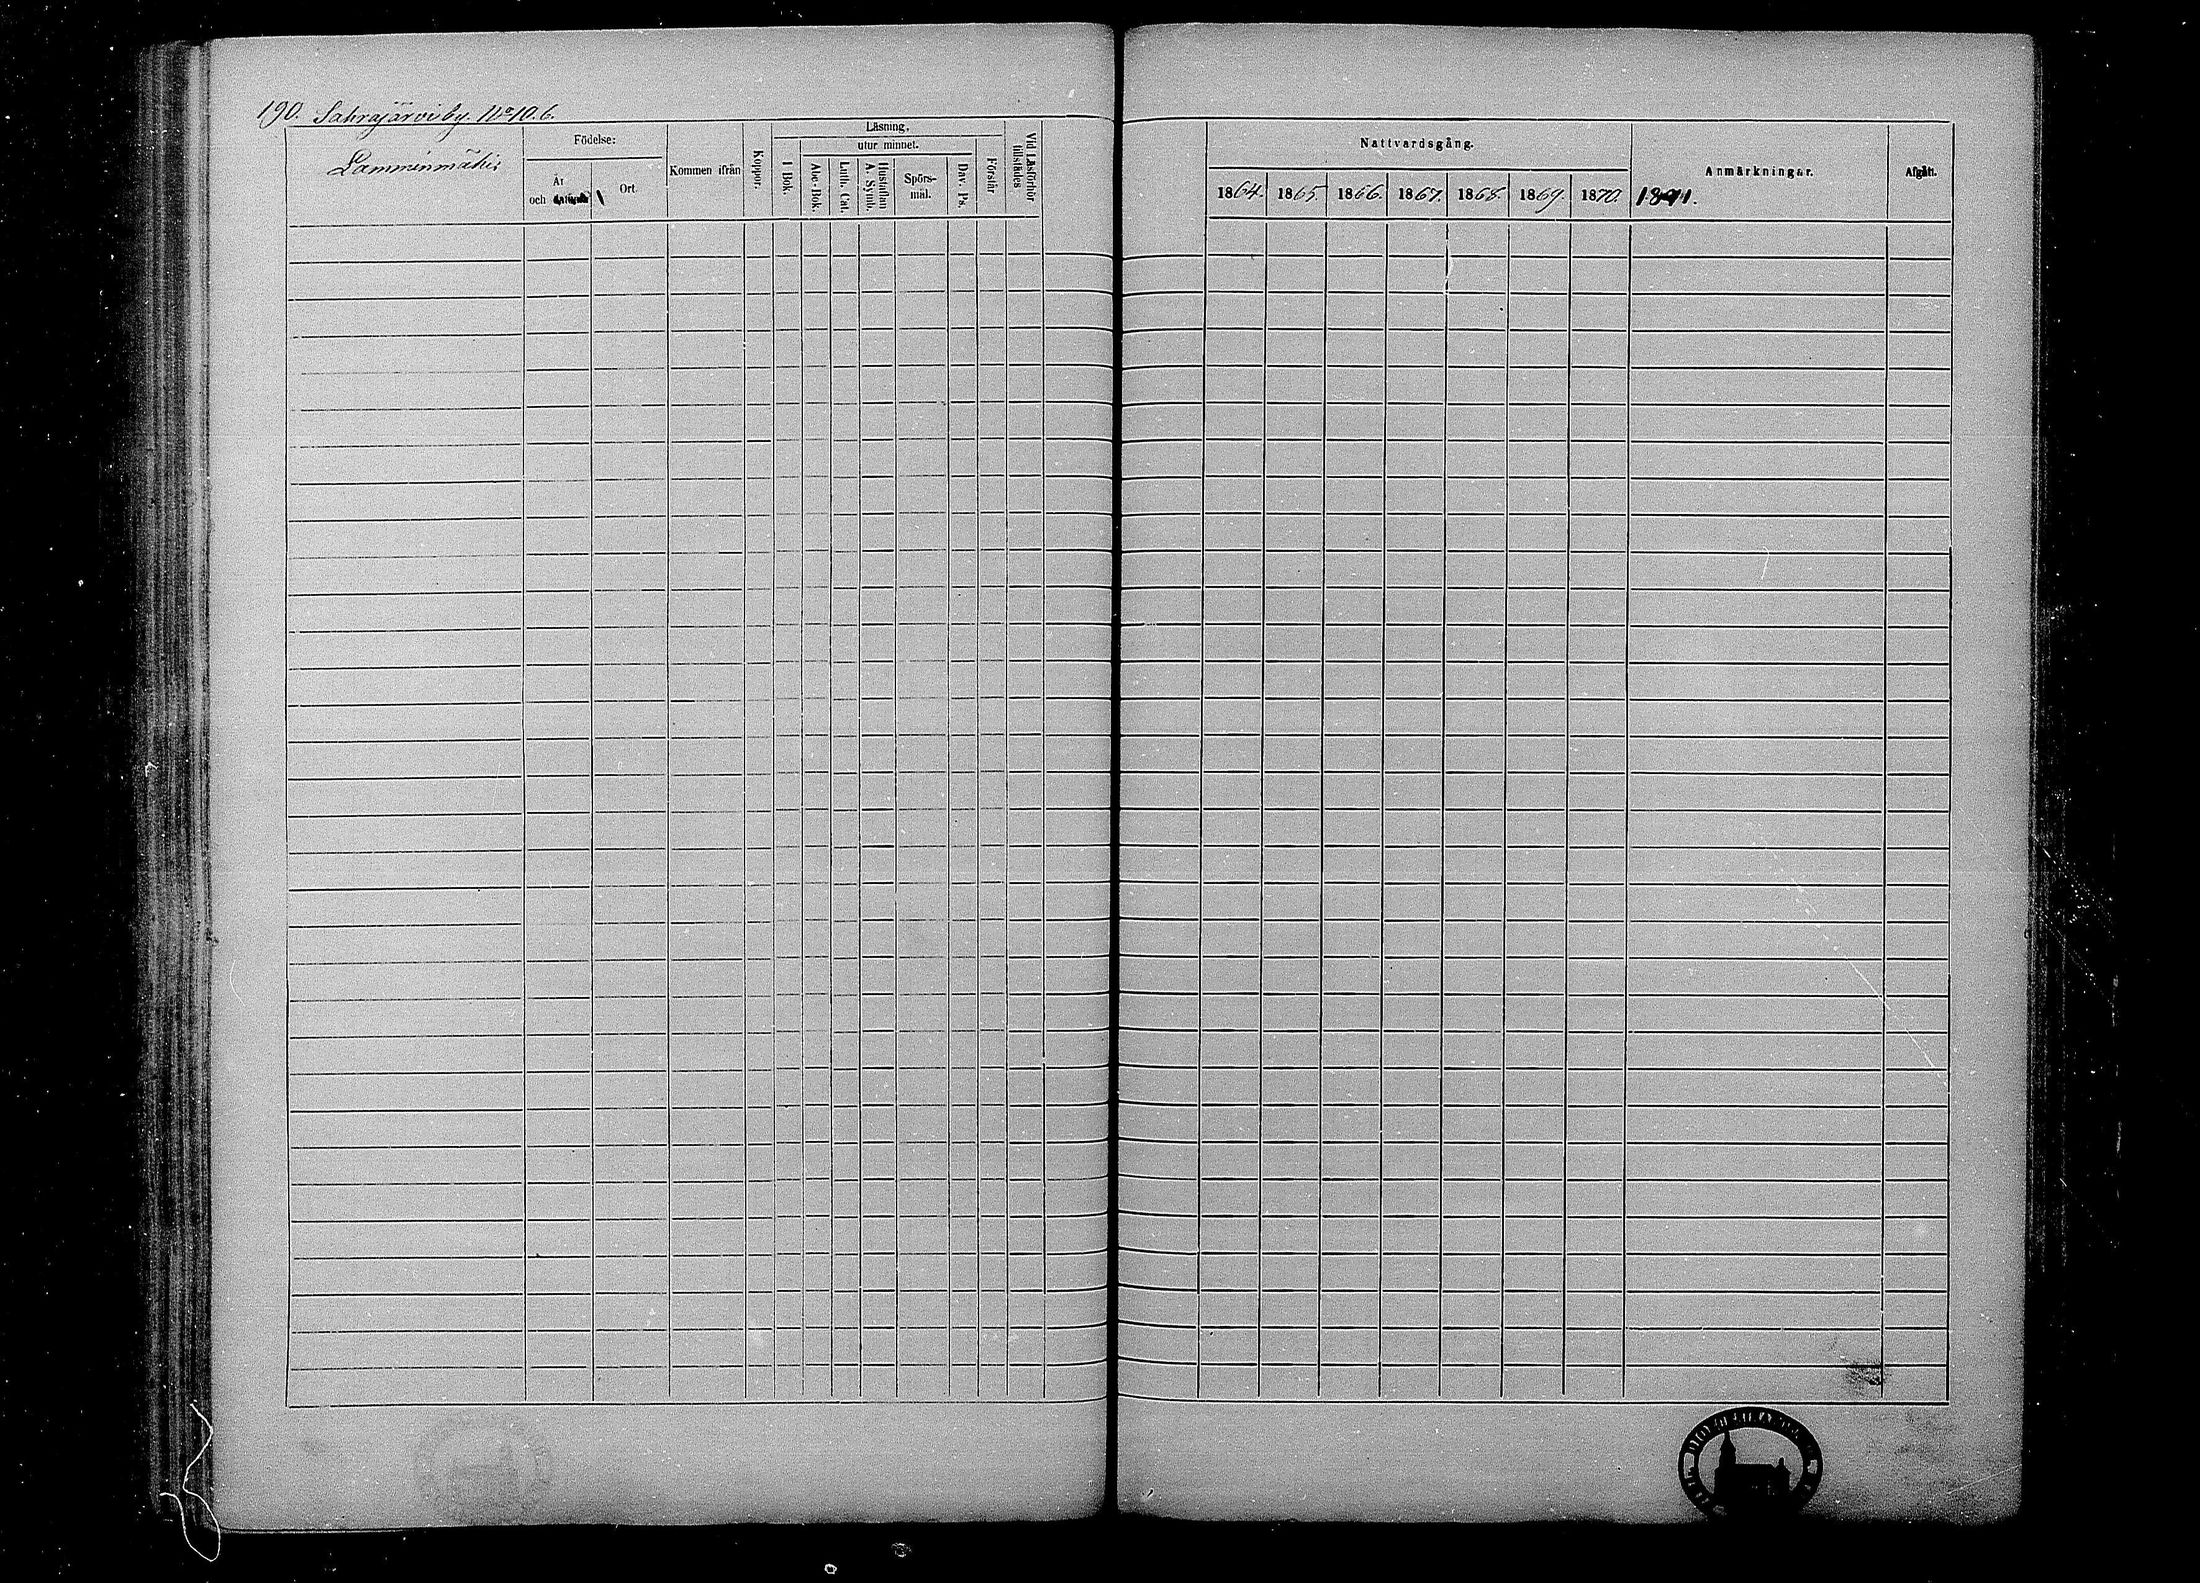 190. Sahrajärvi by. No 10. 6.
Lamminmäki
Födelse:
År
och datum
Ort.
Kommen ifrån
Koppor.
Läsning,
utur minnet.
I Bok.
Abc-Bok.
Luth. Cat.
Hustaflan
A. Symb.
Spörs-
mål.
Dav. Ps.
Förstår
Vid Läsförhör
tillstädes
Nattvardsgång.
1864. 1865. 1866. 1867. 1868. 1869. 1870. 1871.
Anmärkningar.
Afgått.